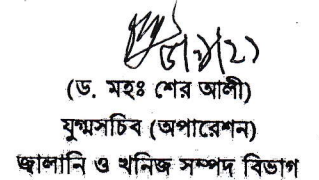 (ড. মহঃ শের আলী)
যুগ্মসচিব (অপারেশন)
জ্বালানি ও খনিজ সম্পদ বিভাগ